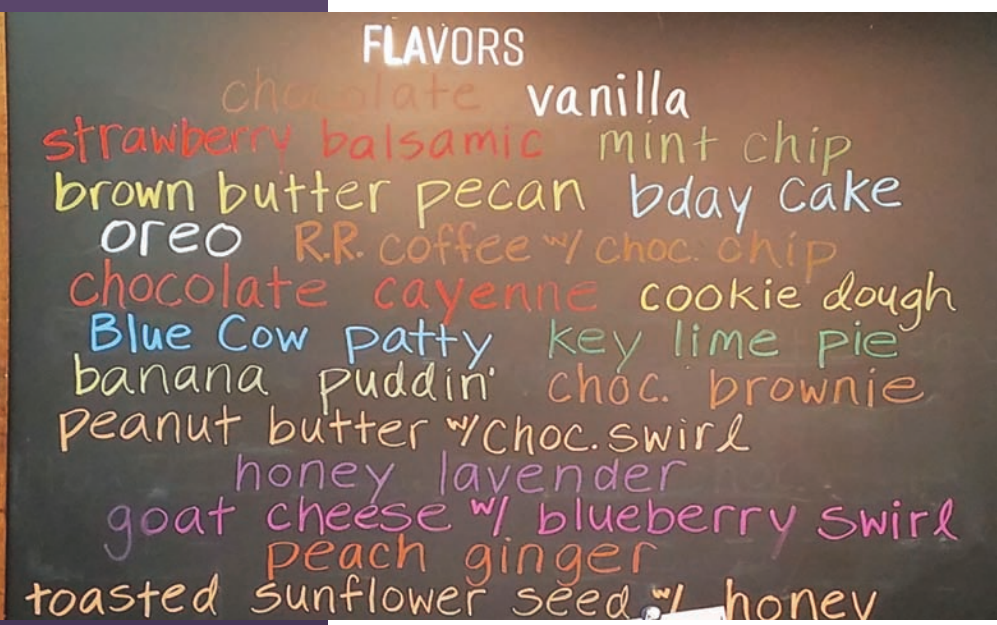 FLAVORS
chocolate vanilla
strawberry balsamic mint chip
brown butter pecan bday cake
oreo R.R. coffee w/ choc. chip
chocolate cayenne cookie dough
Blue Cow patty key lime pie
banana puddin' choc. brownie
peanut butter w/choc. swirl
honey lavender
goat cheese w/ blueberry swirl
peach ginger
toasted sunflower seed w/ honey